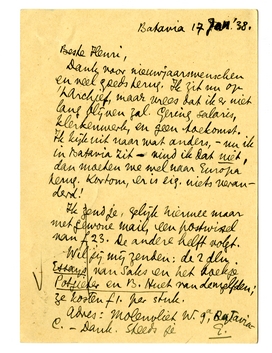 Batavia 17 Jan. '38.
Beste Henri,
Dank voor nieuwjaarswenschen
en veel goeds terug. Ik zit nu op
't archief, maar vrees dat ik er niet
lang blijven zal. Gering salaris,
klerkenwerk, en geen toekomst.
Ik kijk uit naar wat anders, – nu ik
in Batavia zit – vind ik dat niet,
dan moeten we wel naar Europa
terug. Kortom, er is eig. niets veran-
derd!
Ik zend je, gelijk hiermee maar
met gewone mail, een postwissel
van f 23. De andere helft volgt.
Wil jij mij zenden: de 2 dln.
Essays van Saks en het boekje
Potgieter en B. Huet van denzelfden;
ze kosten f 1. per stuk.
Adres: Molenvliet W. 9, Batavia
C. – Dank. Steeds je
E.